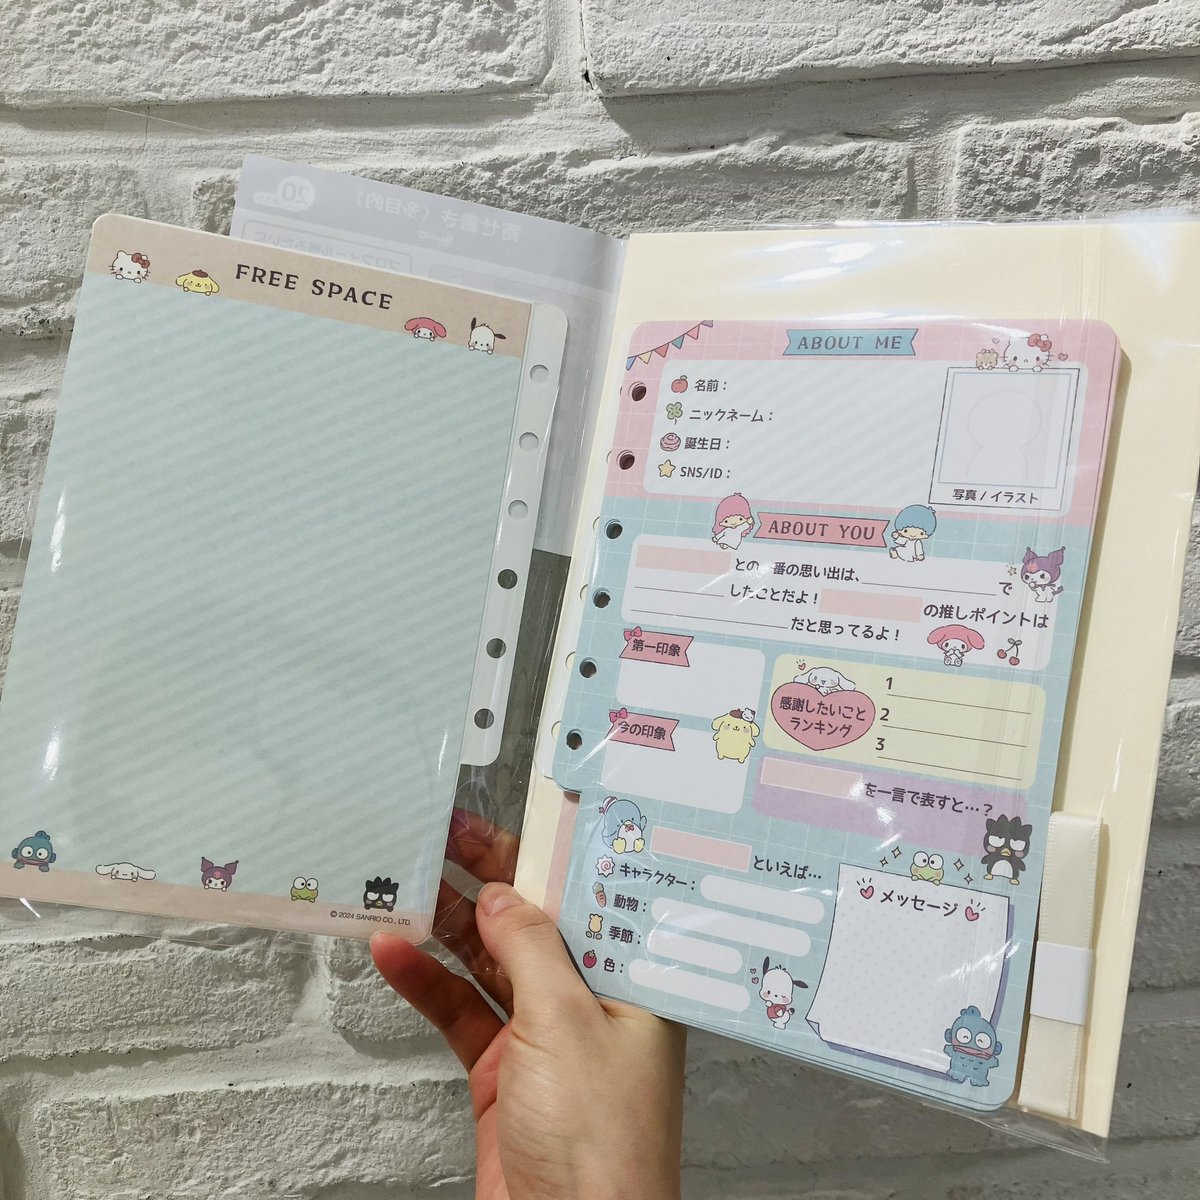 20
寄せ書き(多目的)
FREE SPACE
© 2024 SANRIO CO., LTD.
ABOUT ME
名前：
ニックネーム：
誕生日：
SNS/ID：
写真/イラスト
ABOUT YOU
との一番の思い出は、で
したことだよ！の推しポイントは
だと思ってるよ！
第一印象
今の印象
感謝したいこと
ランキング
1
2
3
を一言で表すと…？
といえば…
キャラクター：
動物：
季節：
色：
メッセージ